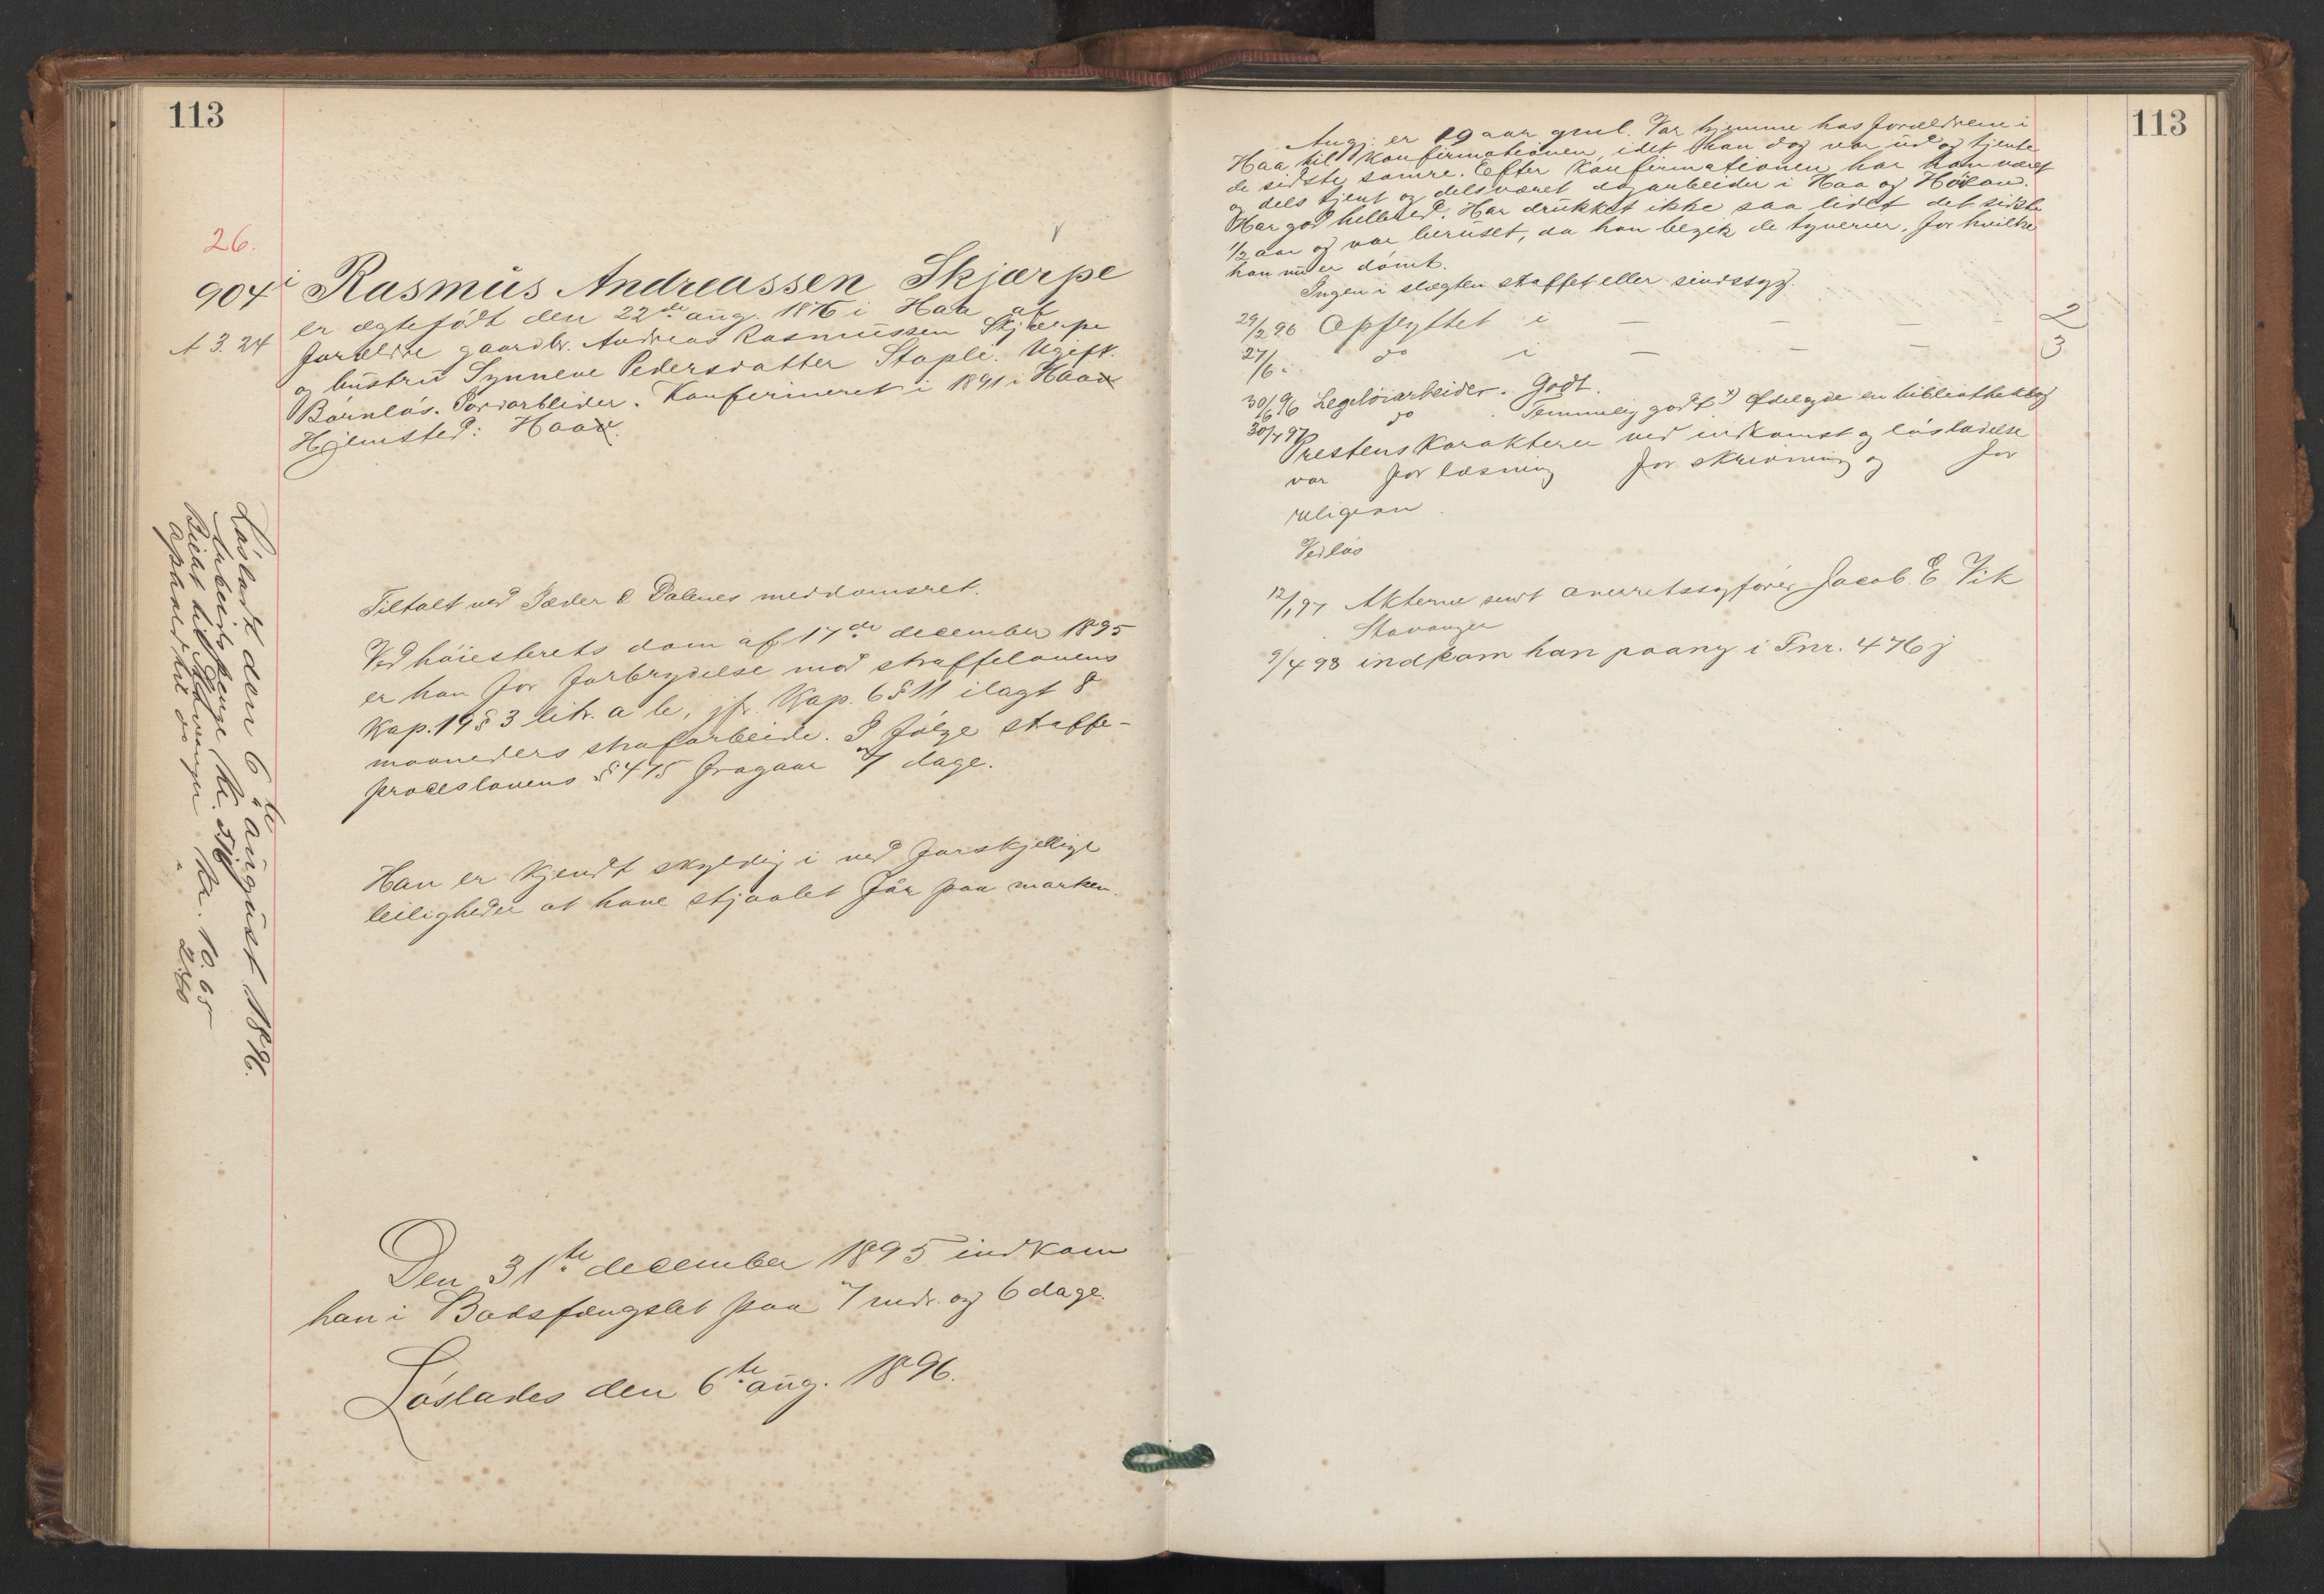 113
26.
904 i Rasmus Andreassen Skjærpe
A 3. 24
er ægtefødt den 22de aug. 1876 i Haa af
forældre gaardbr. Andreas Rasmussen Skjærpe
og hustru Synneve Pedersdatter Stapli. Ugift.
Barnløs. Jordarbeider. Konfirmeret i 1891 i Haa
Hjemsted: Haa
Tiltalt ved Jæder & Dalenes meddomsret.
Ved høiesterets dom af 17de december 1895
er han for forbrydelse mod straffelovens
Kap. 19 § 3 litr. a b, jfr. Kap. 6 § 11 ilagt 8
maaneders strafarbeide. I følge straffe-
proceslovens § 475 fragaar 7 dage.
Han er kjendt skyldig i ved forskjellige
leiligheder at have stjaalet får paa marken.
Den 31te december 1895 indkom
han i Bodsfængslet paa 7 mdr. og 6 dage.
Løslades den 6te aug. 1896.
Løsladt den 6te august 1896.
Arbeidspenge kr.
Billet til Stavanger kr. 10.65
ophold til do " 2.40
113
Angj. er 19 aar gml. Var hjemme hos forældrene i
Haa til Konfirmationen, idet han dog var ud og tjente
de sidste somre. Efter Konfirmationen har han været
og dels tjent og dels været dagarbeider i Haa og Høiland.
Har god helbred. Har drukket ikke saa lidet det sidste
1/2 aar og var beruset, da han begik de tyverier, for hvilke
han nu er dømt.
Ingen i slægten straffet eller sindssyg.
29/2 96 Opflyttet i — — — 2
27/6 " do i — — — 3
30/6 96 Legetøiarbeider. Godt.
30/7 97 do. Temmelig godt x) Ødelagde en bibliothekbog
Prestens Karakterer ved indkomst og løsladelse
var for læsning for skrivning og for
religion.
Vedløs
12/1 97 Akterne sendt overretssagfører Jacob E Vik
Stavanger
9/4 98 indkom han paany i Fnr. 476 j